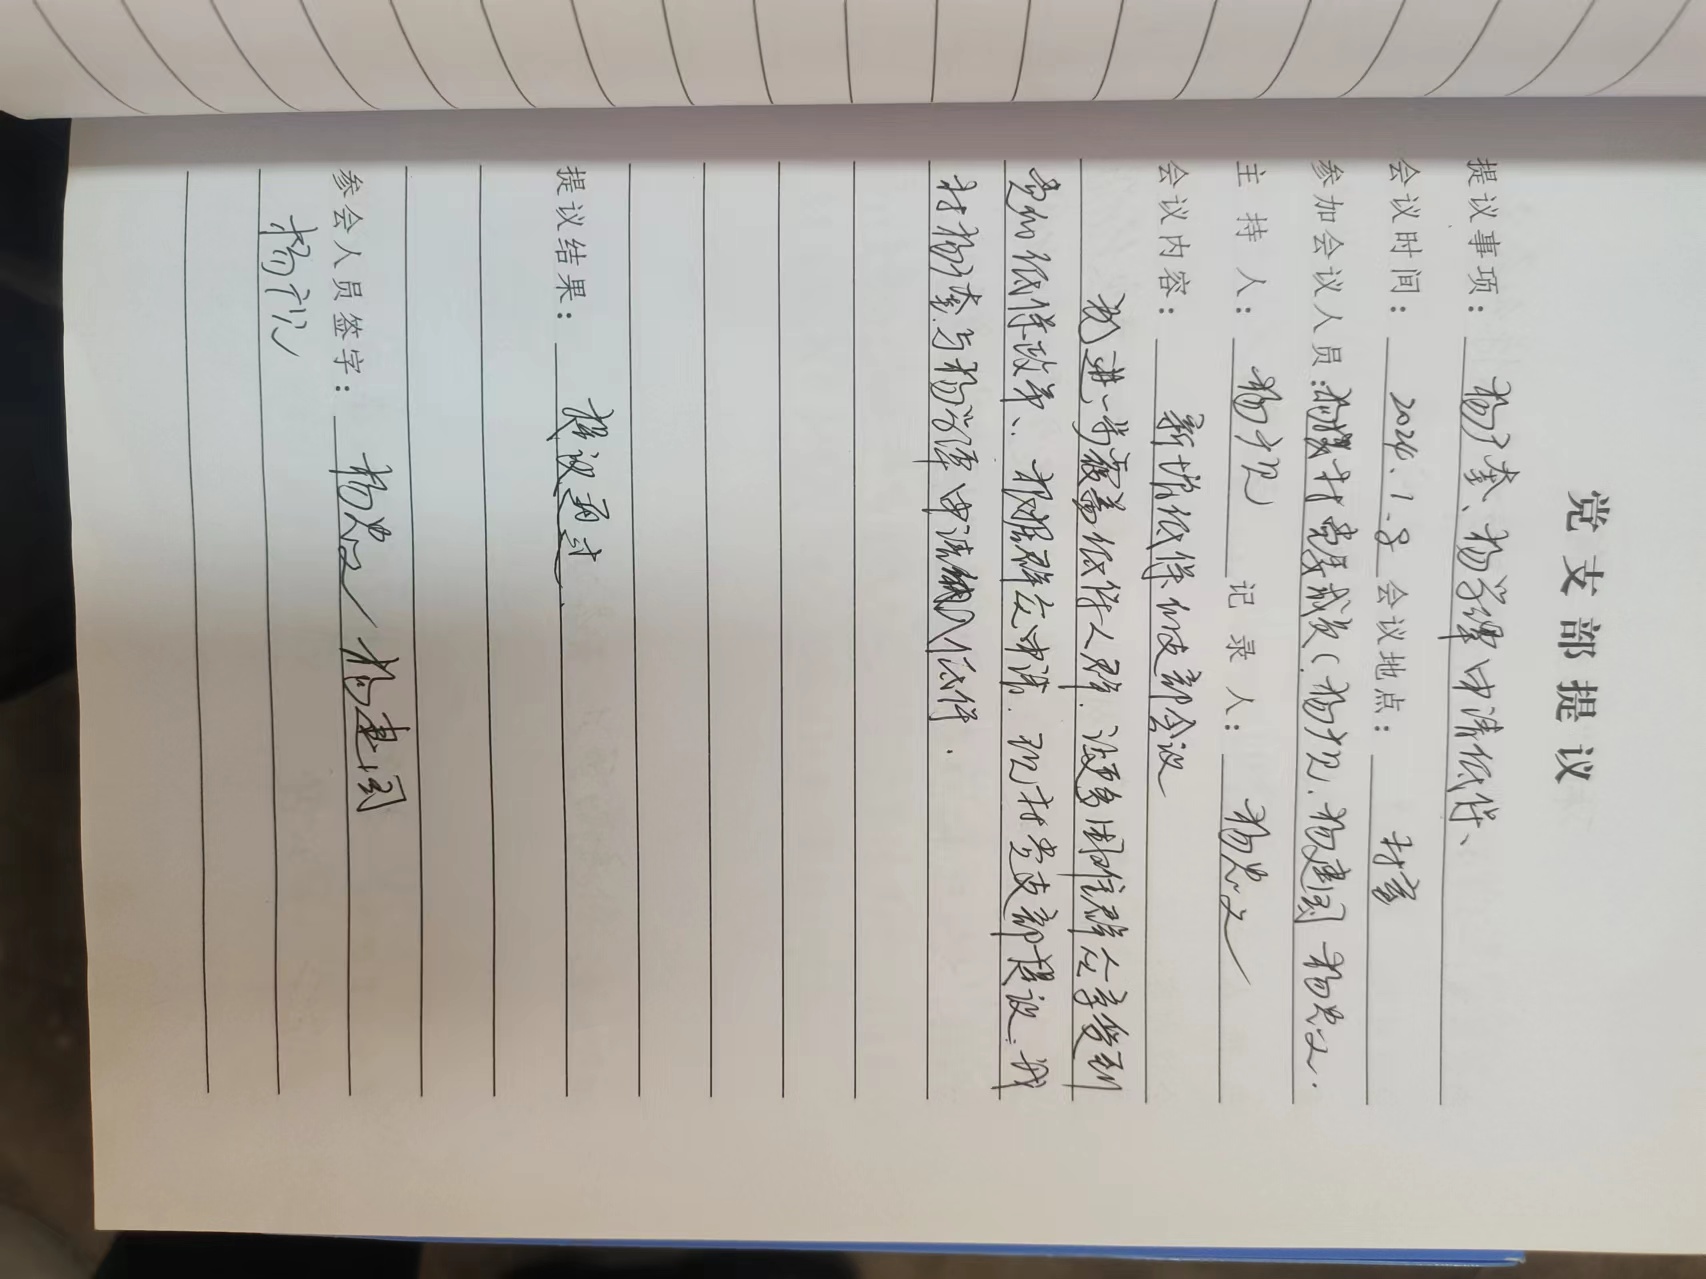 党支部提议
提议事项： 杨广奎、杨学谭申请低保、
会议时间： 2024.1.8 会议地点： 村室
参加会议人员：杨楼村党委成员（杨广见、杨建国 杨忠文.
主持人： 杨广见 记录人： 杨忠文
会议内容： 新增低保的支部会议
为进一步覆盖低保人群．让更多困难群众享受到
党的低保政策、．根据群众申请．现村党支部提议．我
村杨广奎与杨学谭申请纳入低保．
提议结果： 提议通过．
参会人员签字： 杨忠文 杨建国
杨广见